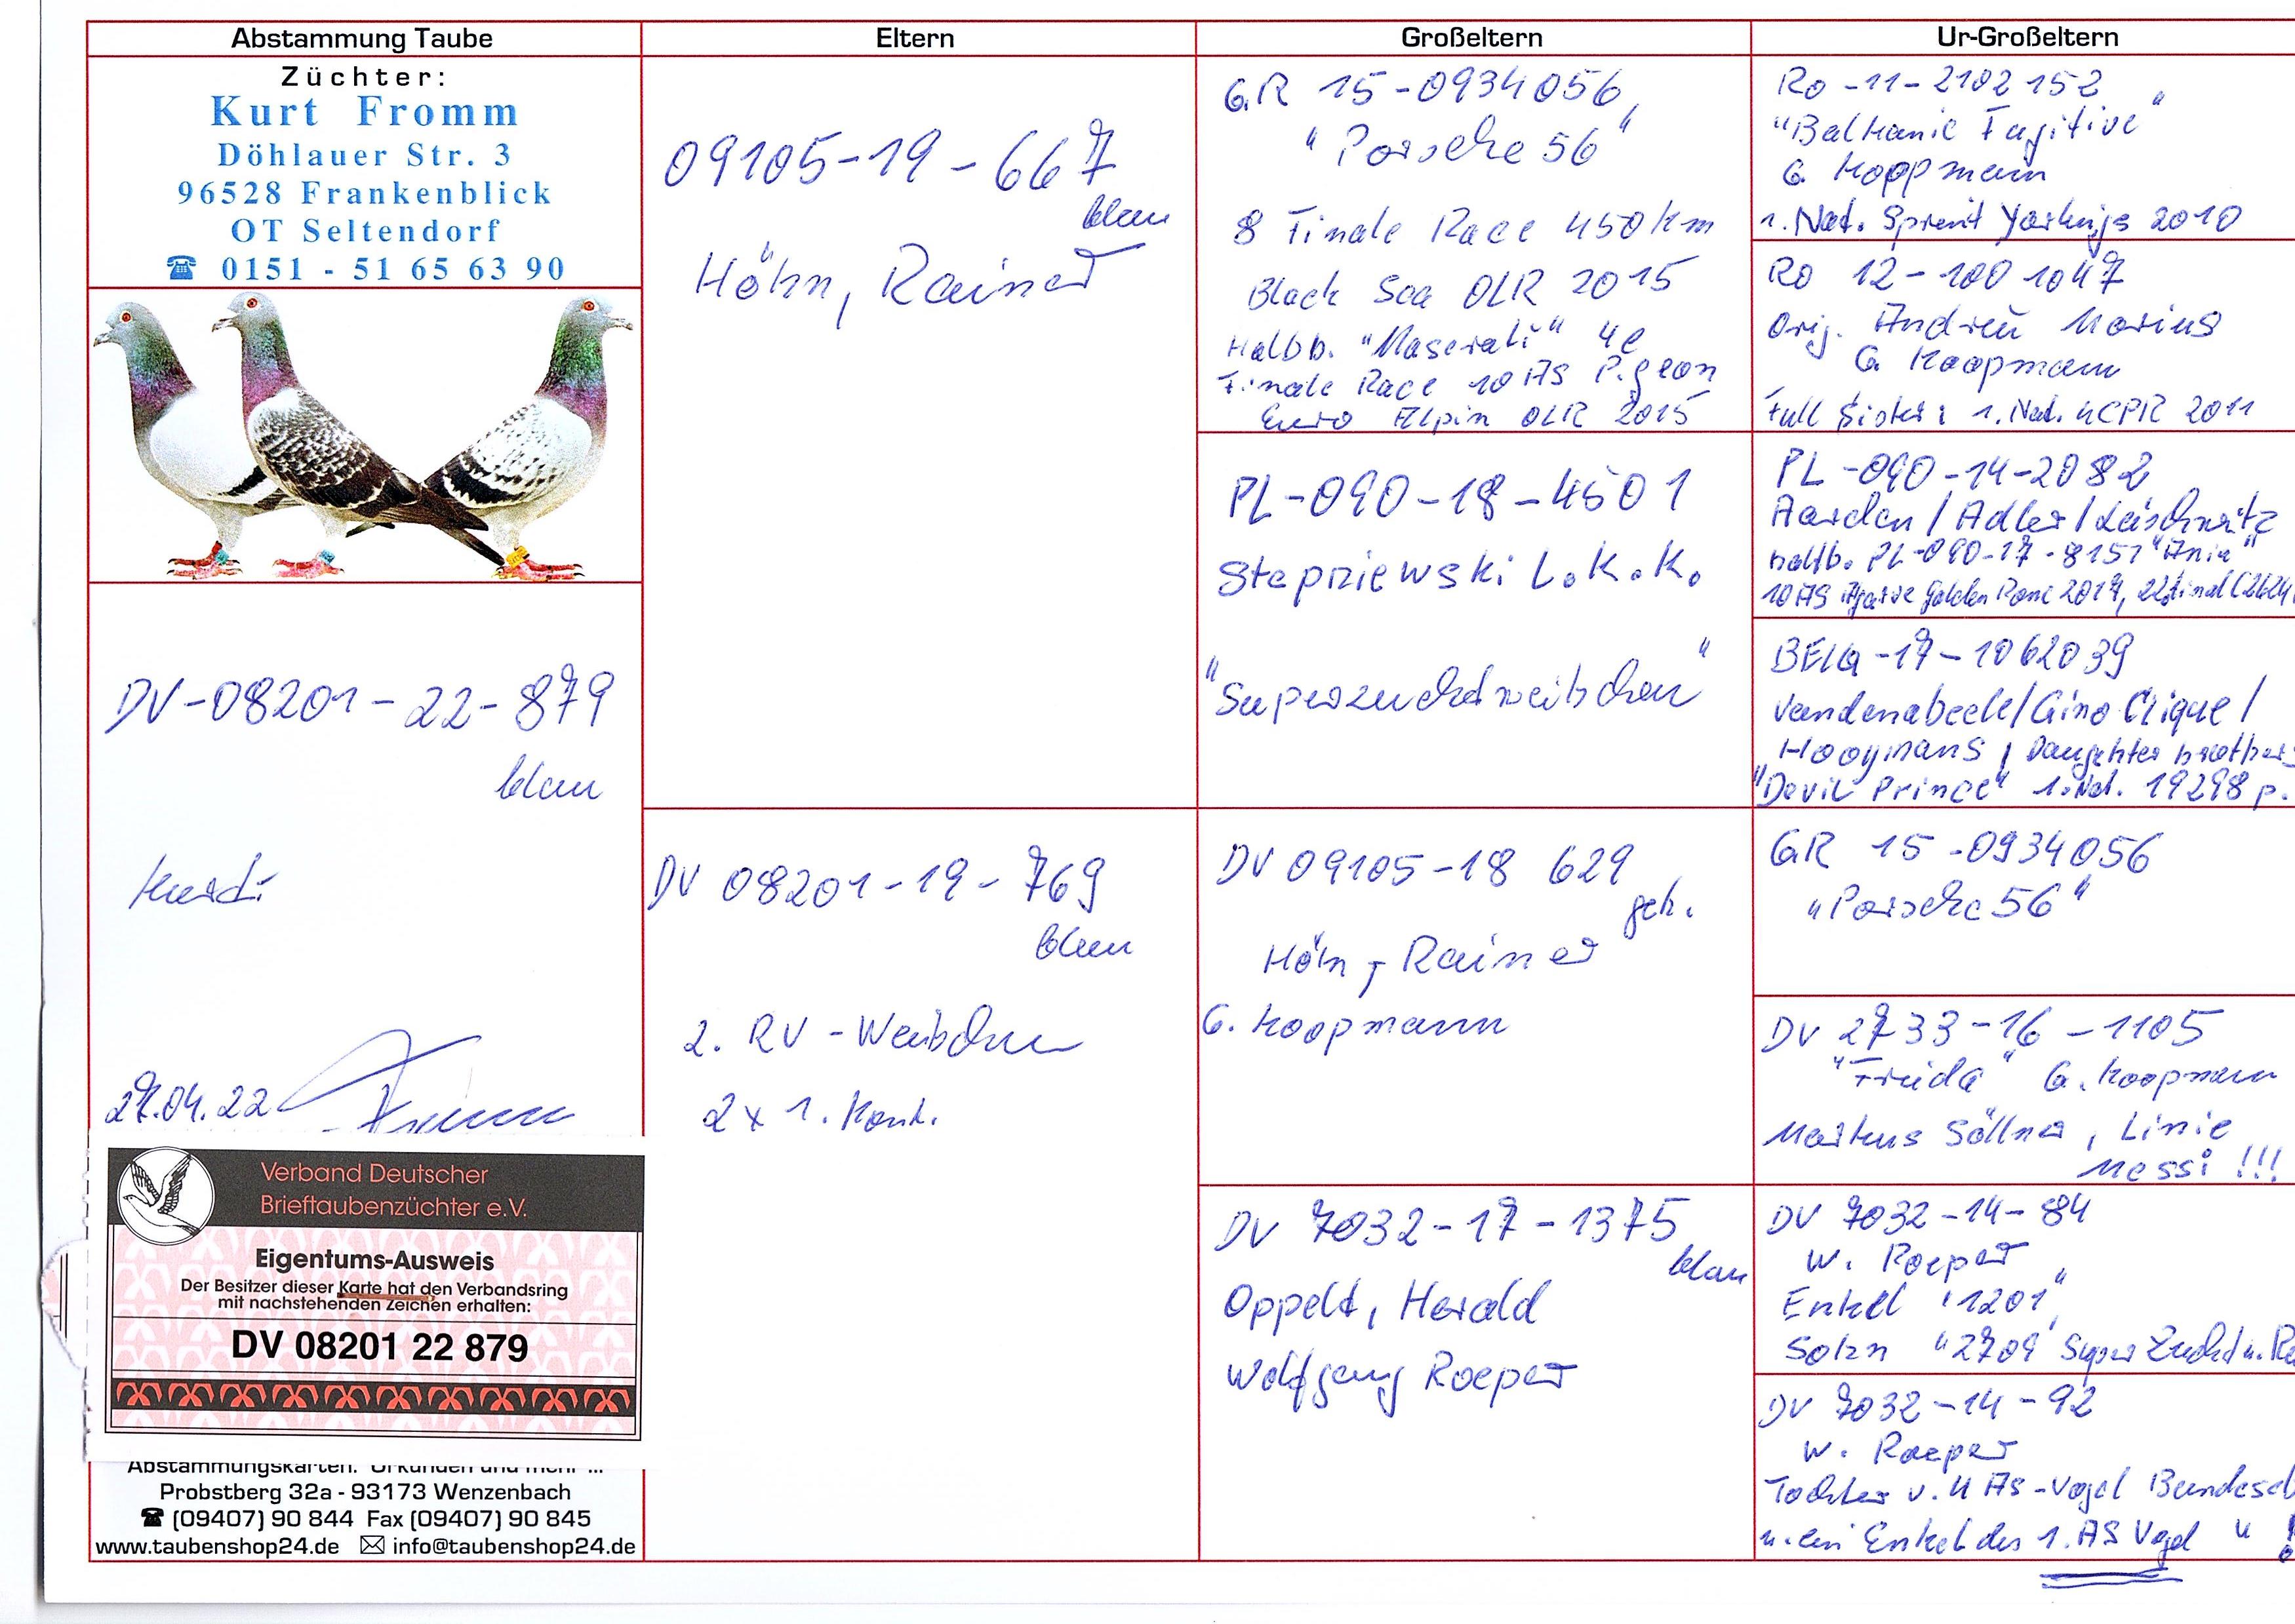 Abstammung Taube
Züchter:
Kurt Fromm
Döhlauer Str. 3
96528 Frankenblick
OT Seltendorf
☎ 0151 - 51 65 63 90
DV-08201-22-879
blau
27.04.22
Verband Deutscher
Brieftaubenzüchter e.V.
Eigentums-Ausweis
Der Besitzer dieser Karte hat den Verbandsring
mit nachstehenden Zeichen erhalten:
DV 08201 22 879
Abstammungskarten. Urkunden und mehr ...
Probstberg 32a - 93173 Wenzenbach
☎ (09407) 90 844 Fax (09407) 90 845
www.taubenshop24.de ✉ info@taubenshop24.de
Eltern
09105-19-667
blau
Höhn, Rainer
DV 08201-19-769
blau
2. RV-Weibchen
2x 1. Konk.
Großeltern
GR 15-0934056
"Porsche 56"
8 Finale Race 450km
Black Sea OLR 2015
Halbb. "Maserati" 4e
Finale Race 10 AS Pigeon
Euro Alpin OLR 2015
PL-090-18-4501
L.K.K.
"Superzuchtweibchen"
DV 09105-18 629
geh.
Höhn, Rainer
G. Koopmann
DV 7032-17-1375
blau
Oppelt, Harald
Wolfgang Roeper
Ur-Großeltern
RO-11-2102152
"Balkanic Fugitive"
G. Koopmann
1. Nat. Sprint 2010
RO 12-1001047
Orig. Andreu Marius
G. Koopmann
Full Sister: 1. Nat. UCPR 2011
PL-090-14-2082
Aarden / Adler / Leischnitz
halbb. PL-090-17-8151 "Ania"
10 AS Golden Race 2017, 22 final (2624
BELG-17-1062039
Vandenabeele/Gino Clique/
Hooymans, Daughter brothers
"Devil Prince" 1. Nat. 19298 p.
GR 15-0934056
"Porsche 56"
DV 2733-16-1105
"Frieda" G. Koopmann
Markus Söllner, Linie
Messi !!!
DV 7032-14-84
W. Roeper
Enkel "1201"
Sohn "2709" Super Zucht u. Re
DV 7032-14-92
W. Roeper
Tochter v. 4 AS-Vogel Bundeseb
u. ein Enkel des 1. AS Vogel " !